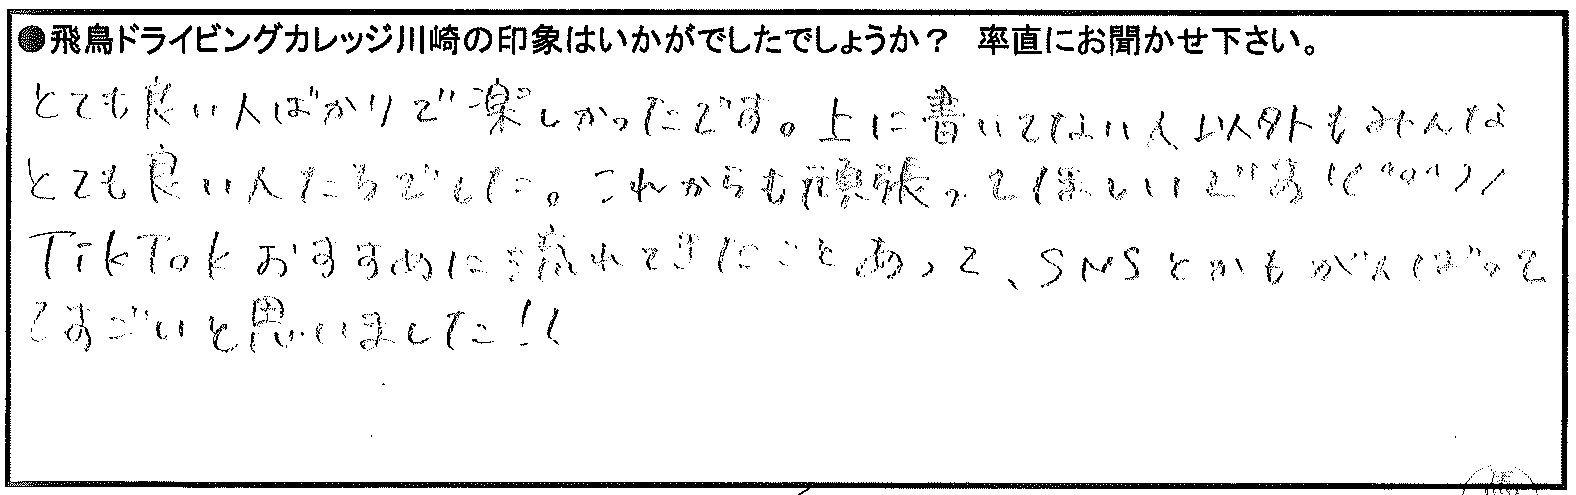 ●飛鳥ドライビングカレッジ川崎の印象はいかがでしたでしょうか？　率直にお聞かせ下さい。
とても良い人ばかりで楽しかったです。上に書いてない人以外もみんな
とても良い人たちでした。これからも頑張ってほしいです!(^o^)/
TikTokおすすめに流れてきたことあって、SNSとかもがんばって
てすごいと思いました!!